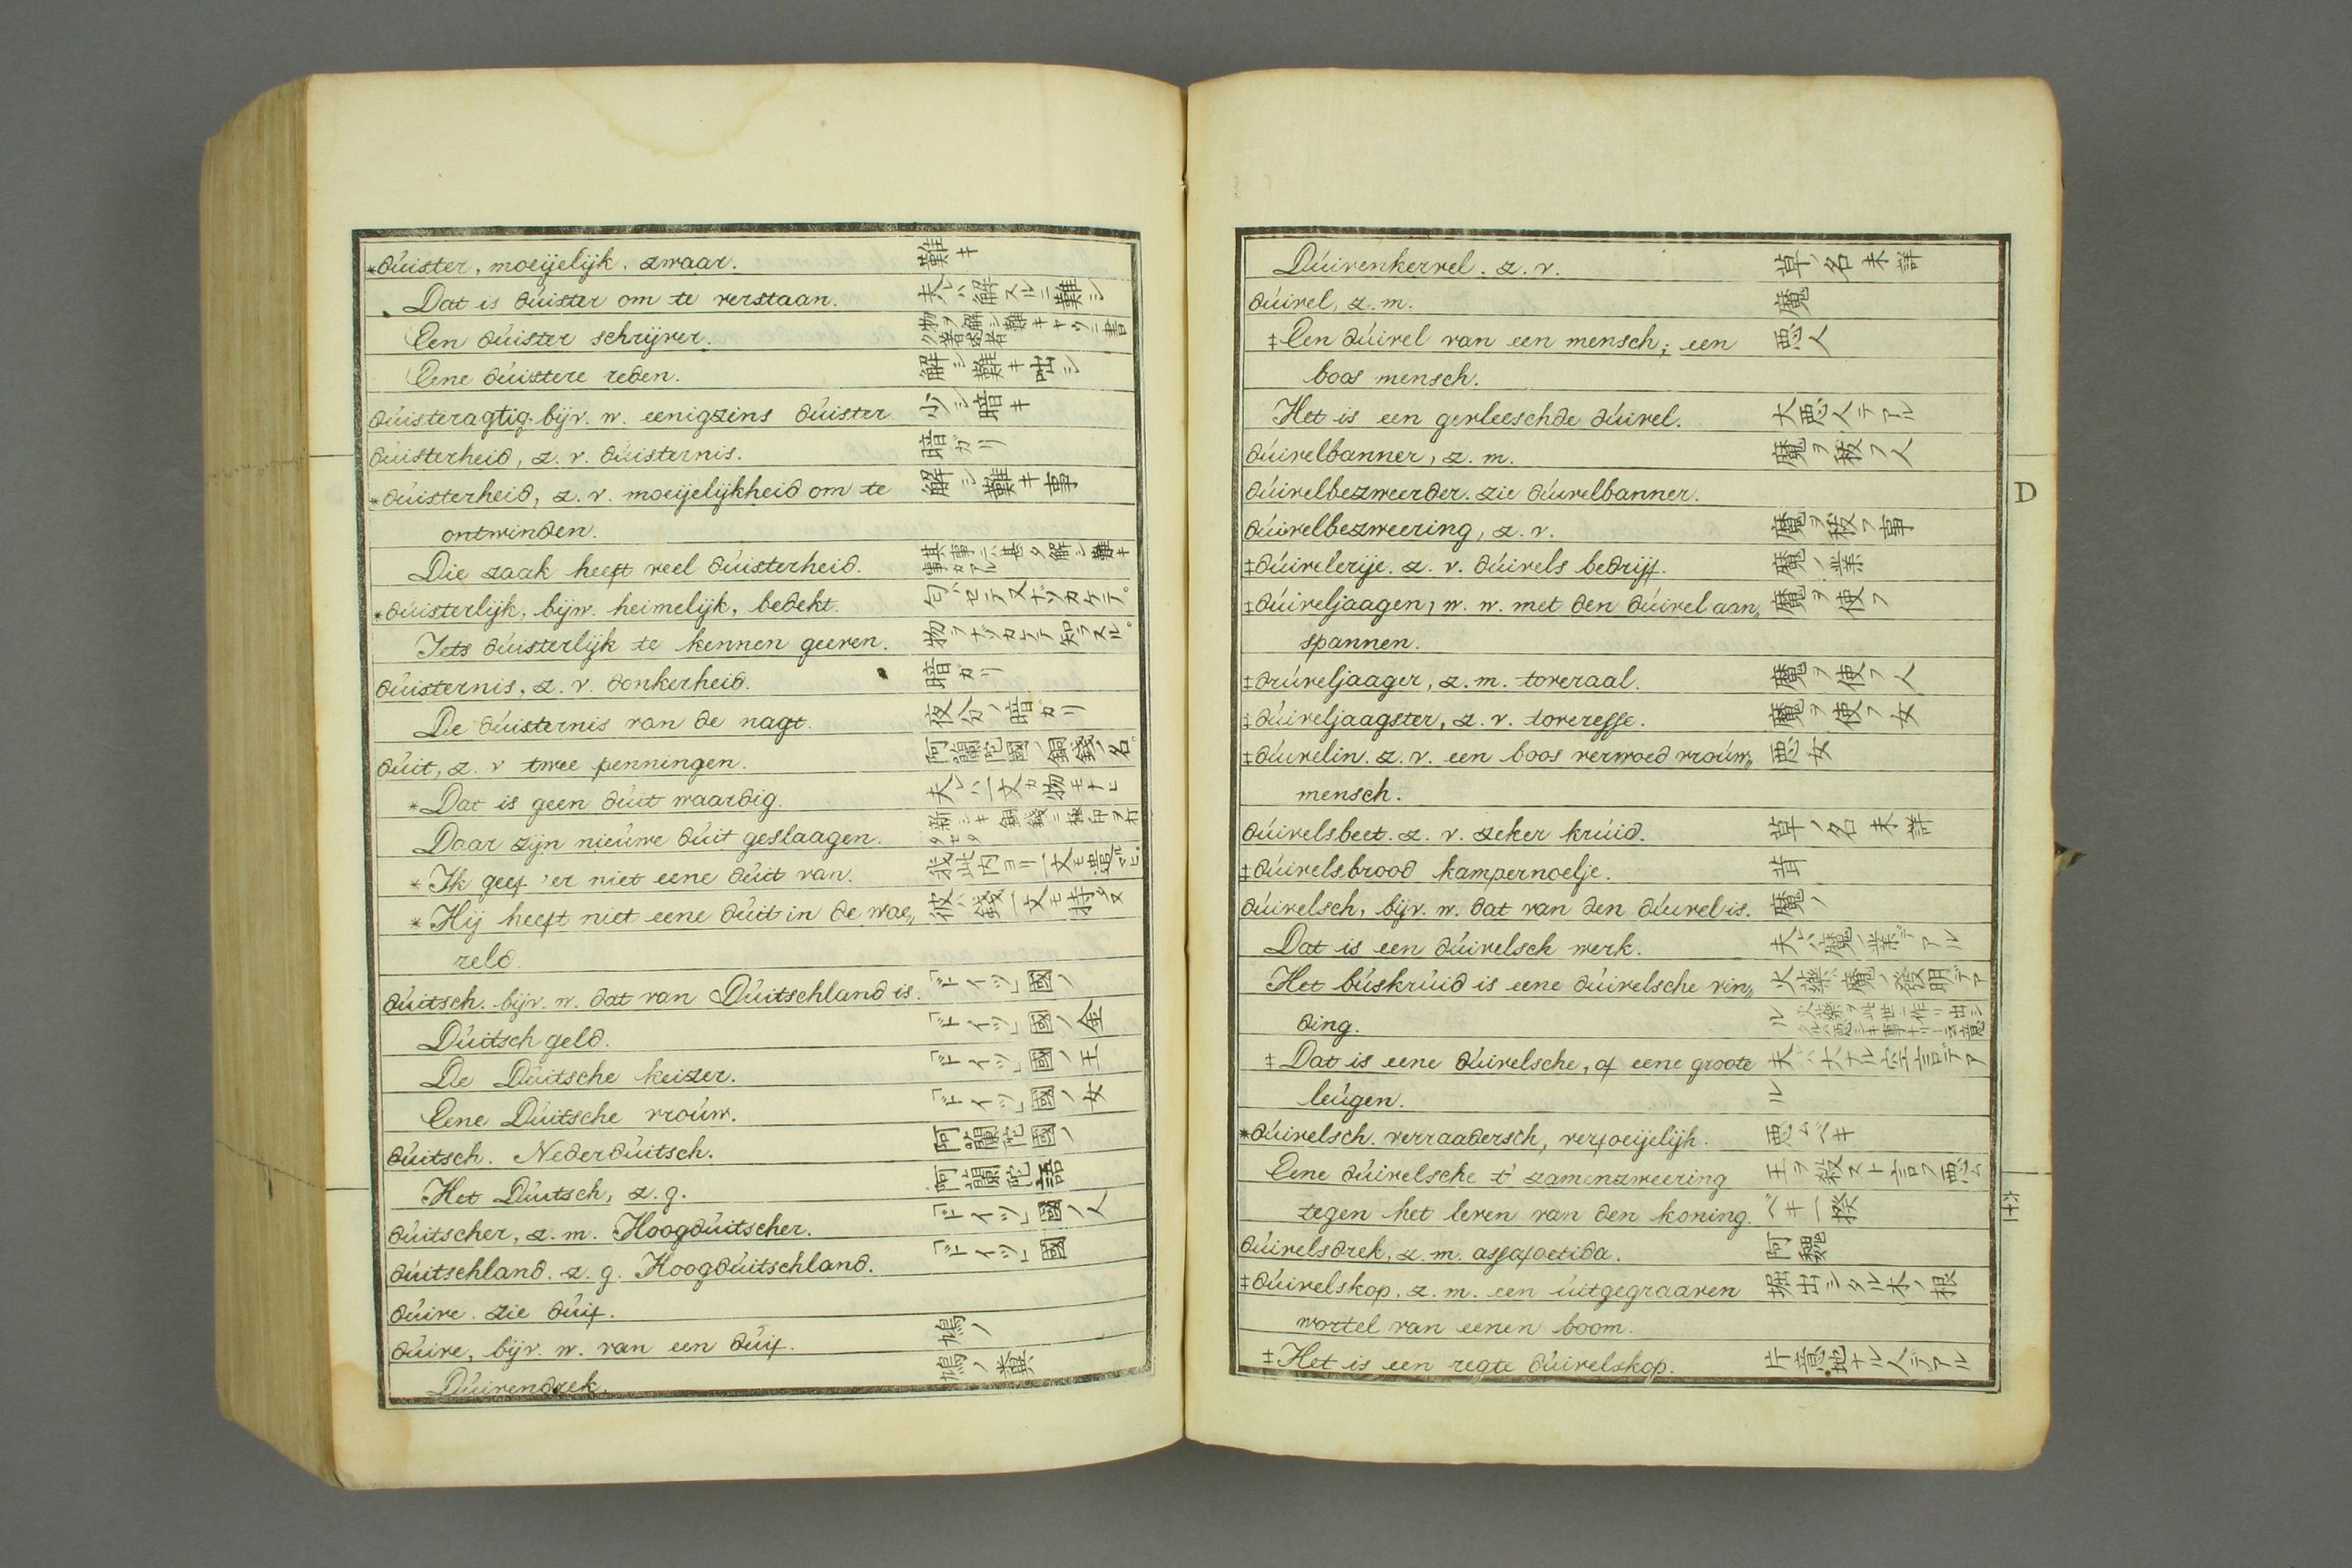 *dúister, moeijelijk. zwaar. 難キ
Dat is dúister om te verstaan. 夫レハ解スルニ難シ
Een dúister schrijver. 物ヲ解シ難キヤウニ書ク著述者
Eene dúistere reden. 解シ難キ咄シ
dúisteragtig. bijv. w. eenigzins dúister 少シ暗キ
dúisterheid, z. v. dúisternis. 暗ガリ
*dúisterheid, z. v. moeijelijkheid om te 解シ難キ事
ontwinden.
Die zaak heeft veel dúisterheid. 其事ニハ甚タ解シ難キ事カアル
*dúisterlijk, bijw. heimelijk, bedekt. 匂ハセテ又ナゾカケテ。
Iets dúisterlijk te kennen geeven. 物ヲナゾカケテ知ラスル。
dúisternis, z. v. donkerheid. 暗ガリ
De dúisternis van de nagt. 夜分ノ暗ガリ
dúit, z. v twee penningen. 阿蘭陀國ノ銅錢ノ名。
*Dat is geen dúit waardig. 夫レハ一文カ物モナヒ
Daar zijn nieúwe dúit geslaagen. 新シキ銅錢ニ極印ヲ打タセタ
*Ik geef 'er niet eene dúit van. 我此内ヨリ一文モ
*Hij heeft niet eene dúit in de wae„ 彼ハ錢一文モ持タヌ
reld.
dúitsch. bijv. w. dat van Dúitschland is. 「ドイツ」國ノ
Dúitsch geld. 「ドイツ」國ノ金
De Dúitsche keizer. 「ドイツ」國ノ王
Eene Dúitsche vroúw. 「ドイツ」國ノ女
dúitsch. Nederdúitsch. 阿蘭陀國ノ
Het Dúitsch, z. g. 阿蘭陀語
dúitscher, z. m. Hoogdúitscher. 「ドイツ」國ノ人
dúitschland. z. g. Hoogdúitschland. 「ドイツ」國
dúive. zie dúif.
dúive, bijv. w. van een dúif. 鳩ノ
Dúivendrek. 鳩ノ糞
Dúivenkervel. z. v. 草ノ名未詳
dúivel, z. m. 魔
‡Een dúivel van een mensch; een 悪人
boos mensch.
Het is een gevleeschde dúivel. 大悪人テアル
dúivelbanner, z. m. 魔ヲ祓フ人
dúivelbezweerder. zie dúivelbanner.
D
dúivelbezweering, z. v. 魔ヲ祓フ事
‡dúivelerije. z. v. dúivels bedrijf. 魔ノ業
‡dúiveljaagen, w. w. met den dúivel aan„ 魔ヲ使フ
spannen.
‡drúveljaager, z. m. toveraal. 魔ヲ使フ人
‡dúiveljaagster, z. v. toveresse. 魔ヲ使フ女
‡dúivelin. z. v. een boos verwoed vroúw„ 悪女
mensch.
dúivelsbeet. z. v. zeker krúid. 草ノ名未詳
‡dúivelsbrood kampernoelje. 茸
dúivelsch, bijv. w. dat van den dúivel is. 魔ノ
Dat is een dúivelsch werk. 夫レハ魔ノ業デアル
Het búskrúid is eene dúivelsche vin„ 火藥ハ魔ノ發明デア
ding. ル 火藥ヲ此世ニ作リ出シタルハ悪シキ事ナリト云意
‡Dat is eene dúivelsche, of eene groote 夫レハ大ナル空言デア
leúgen. ル
*dúivelsch. verraadersch, verfoeijelijk. 悪ムベキ
Eene dúivelsche t' zamenzweering 王ヲ殺スト言フ悪ム
tegen het leven van den koning. ベキ一揆
dúivelsdrek, z. m. assafoetida. 阿魏
‡dúivelskop, z. m. een úitgegraaven 堀出シタル木ノ根
wortel van eenen boom.
‡Het is een regte dúivelskop. 片意地ナル人デアル